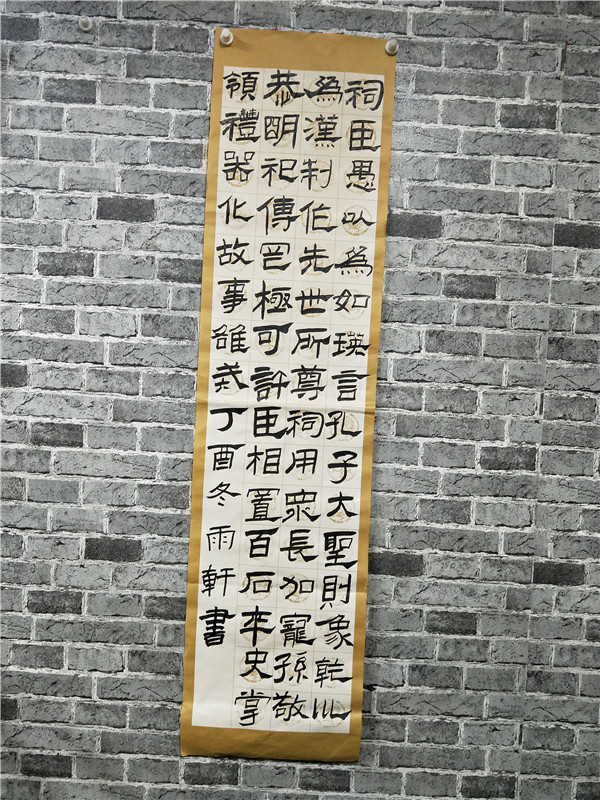 祠臣愚以為如瑛言孔子大聖則象乾川
為漢制作先世所尊祠用眾長加寵孫敬
恭明祀傳罔極可許臣相置百石卒史掌
領禮器化故事丁酉冬雨軒書